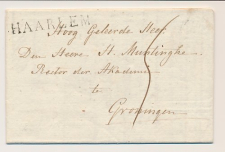 HAARLEM
Hoog Geleerde Heer
Den Heere H. Muntinghe
Rector der Akademie
te
Groningen
5